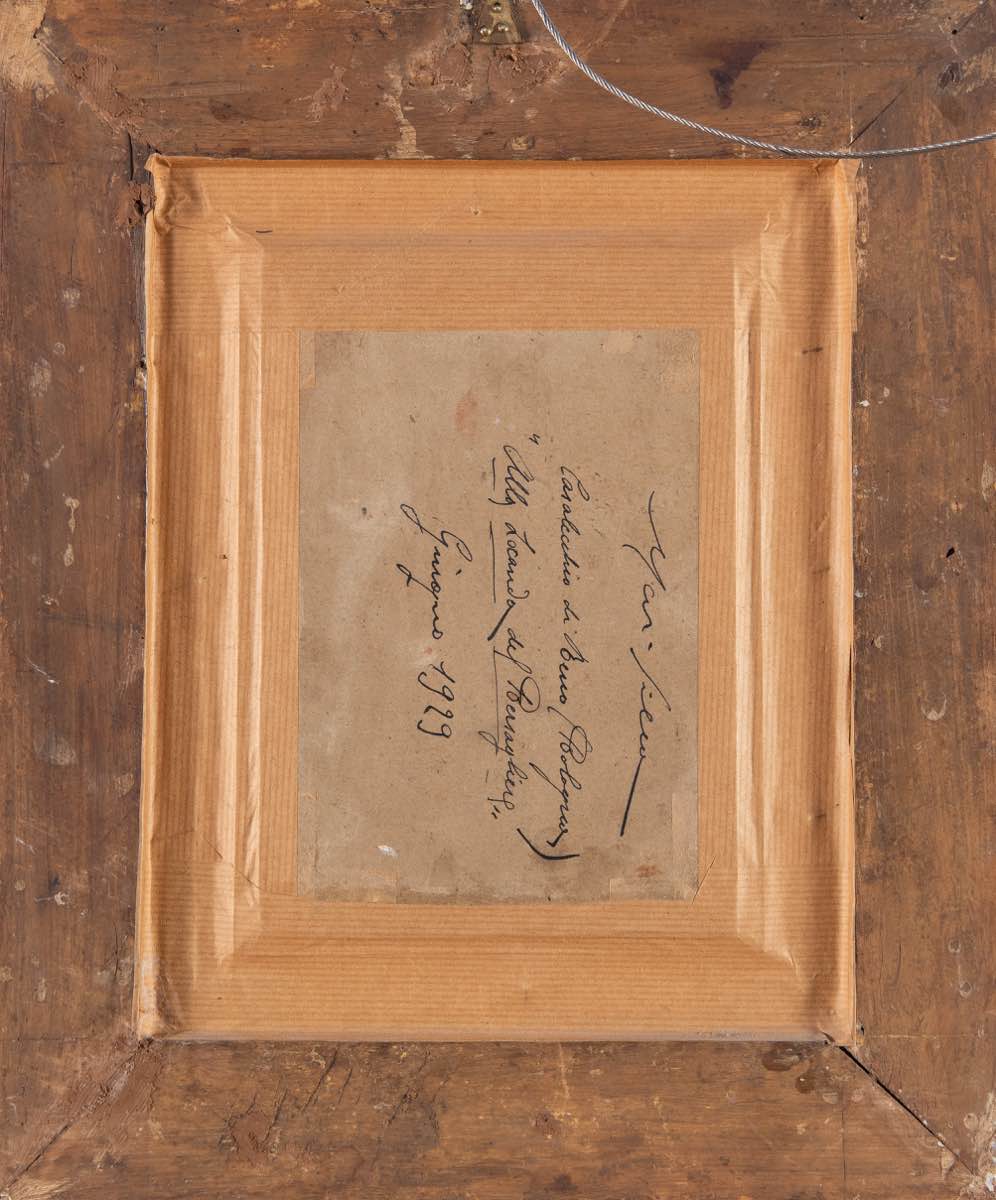 Casalecchio di Reno (Bologna)
"Alla Locanda del Bersagliere"
Giugno 1929